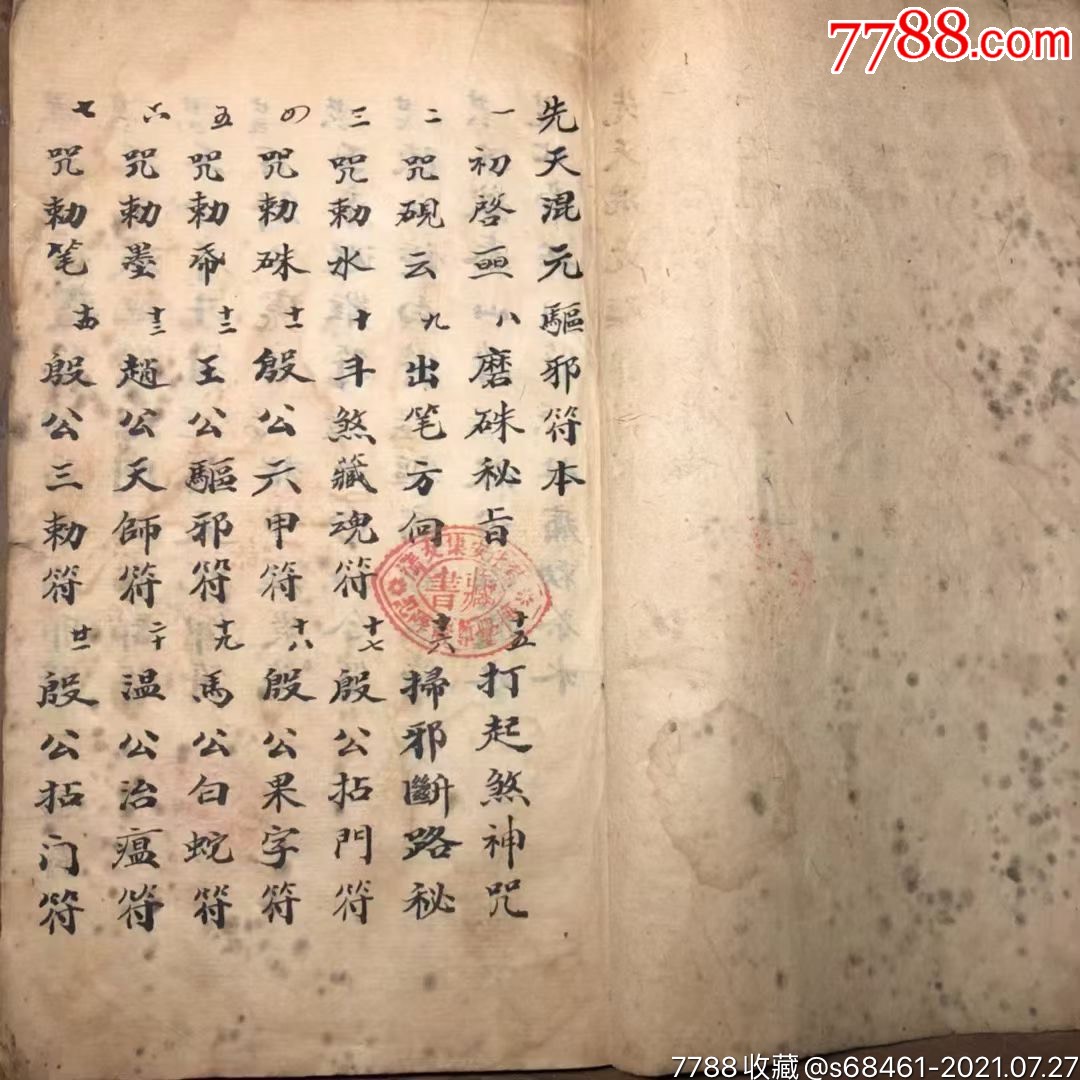 7788.com
先天混元驅邪符本
一 初啓 八 磨硃秘旨 十五 打起煞神咒
二 咒硯云 九 出笔方向 十六 掃邪斷路秘
三 咒勅水 十 斗煞藏魂符 十七 殷公拈門符
四 咒勅硃 十一 殷公六甲符 十八 殷公果字符
五 咒勅帋 十二 王公驅邪符 十九 馬公白蛇符
六 咒勅墨 十三 趙公天師符 二十 温公治瘟符
七 咒勅笔 十四 殷公三勅符 廿一 殷公拈门符
藏書
7788收藏@s68461-2021.07.27